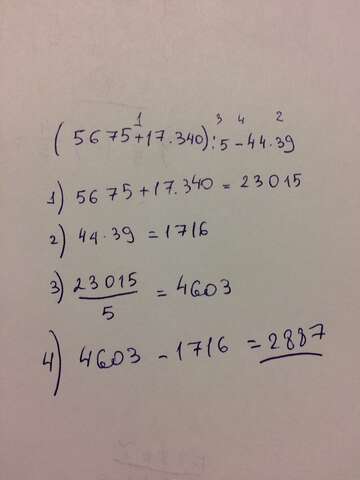 1 3 4 2
(5675+17.340):5-44.39
1) 5675+17.340=23015
2) 44.39=1716
3) 23015/5=4603
4) 4603-1716=2887